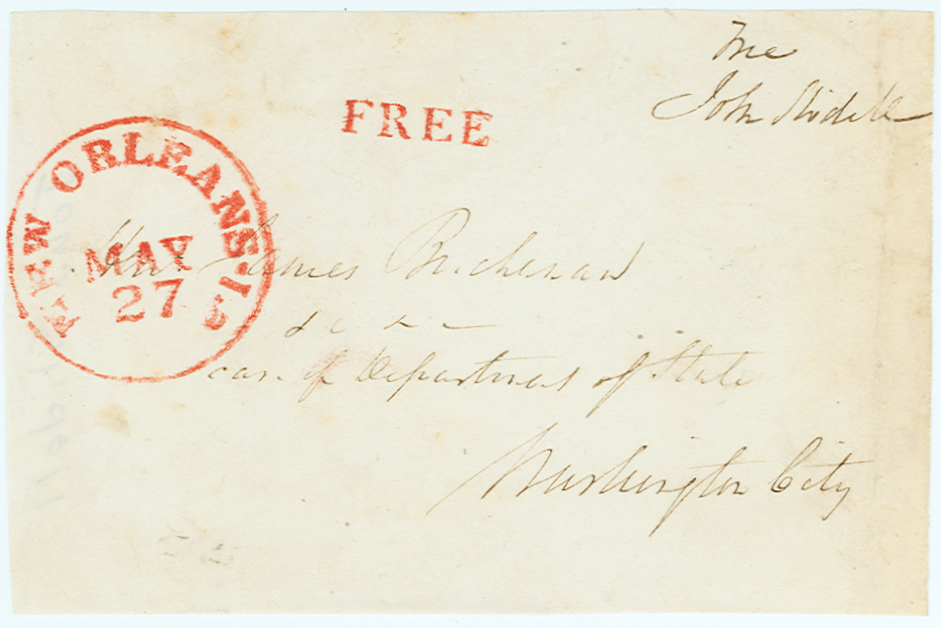 Free
John Slidell
FREE
NEW ORLEANS LA
MAY
27
Hon James Buchanan
care of Department of State
Washington City